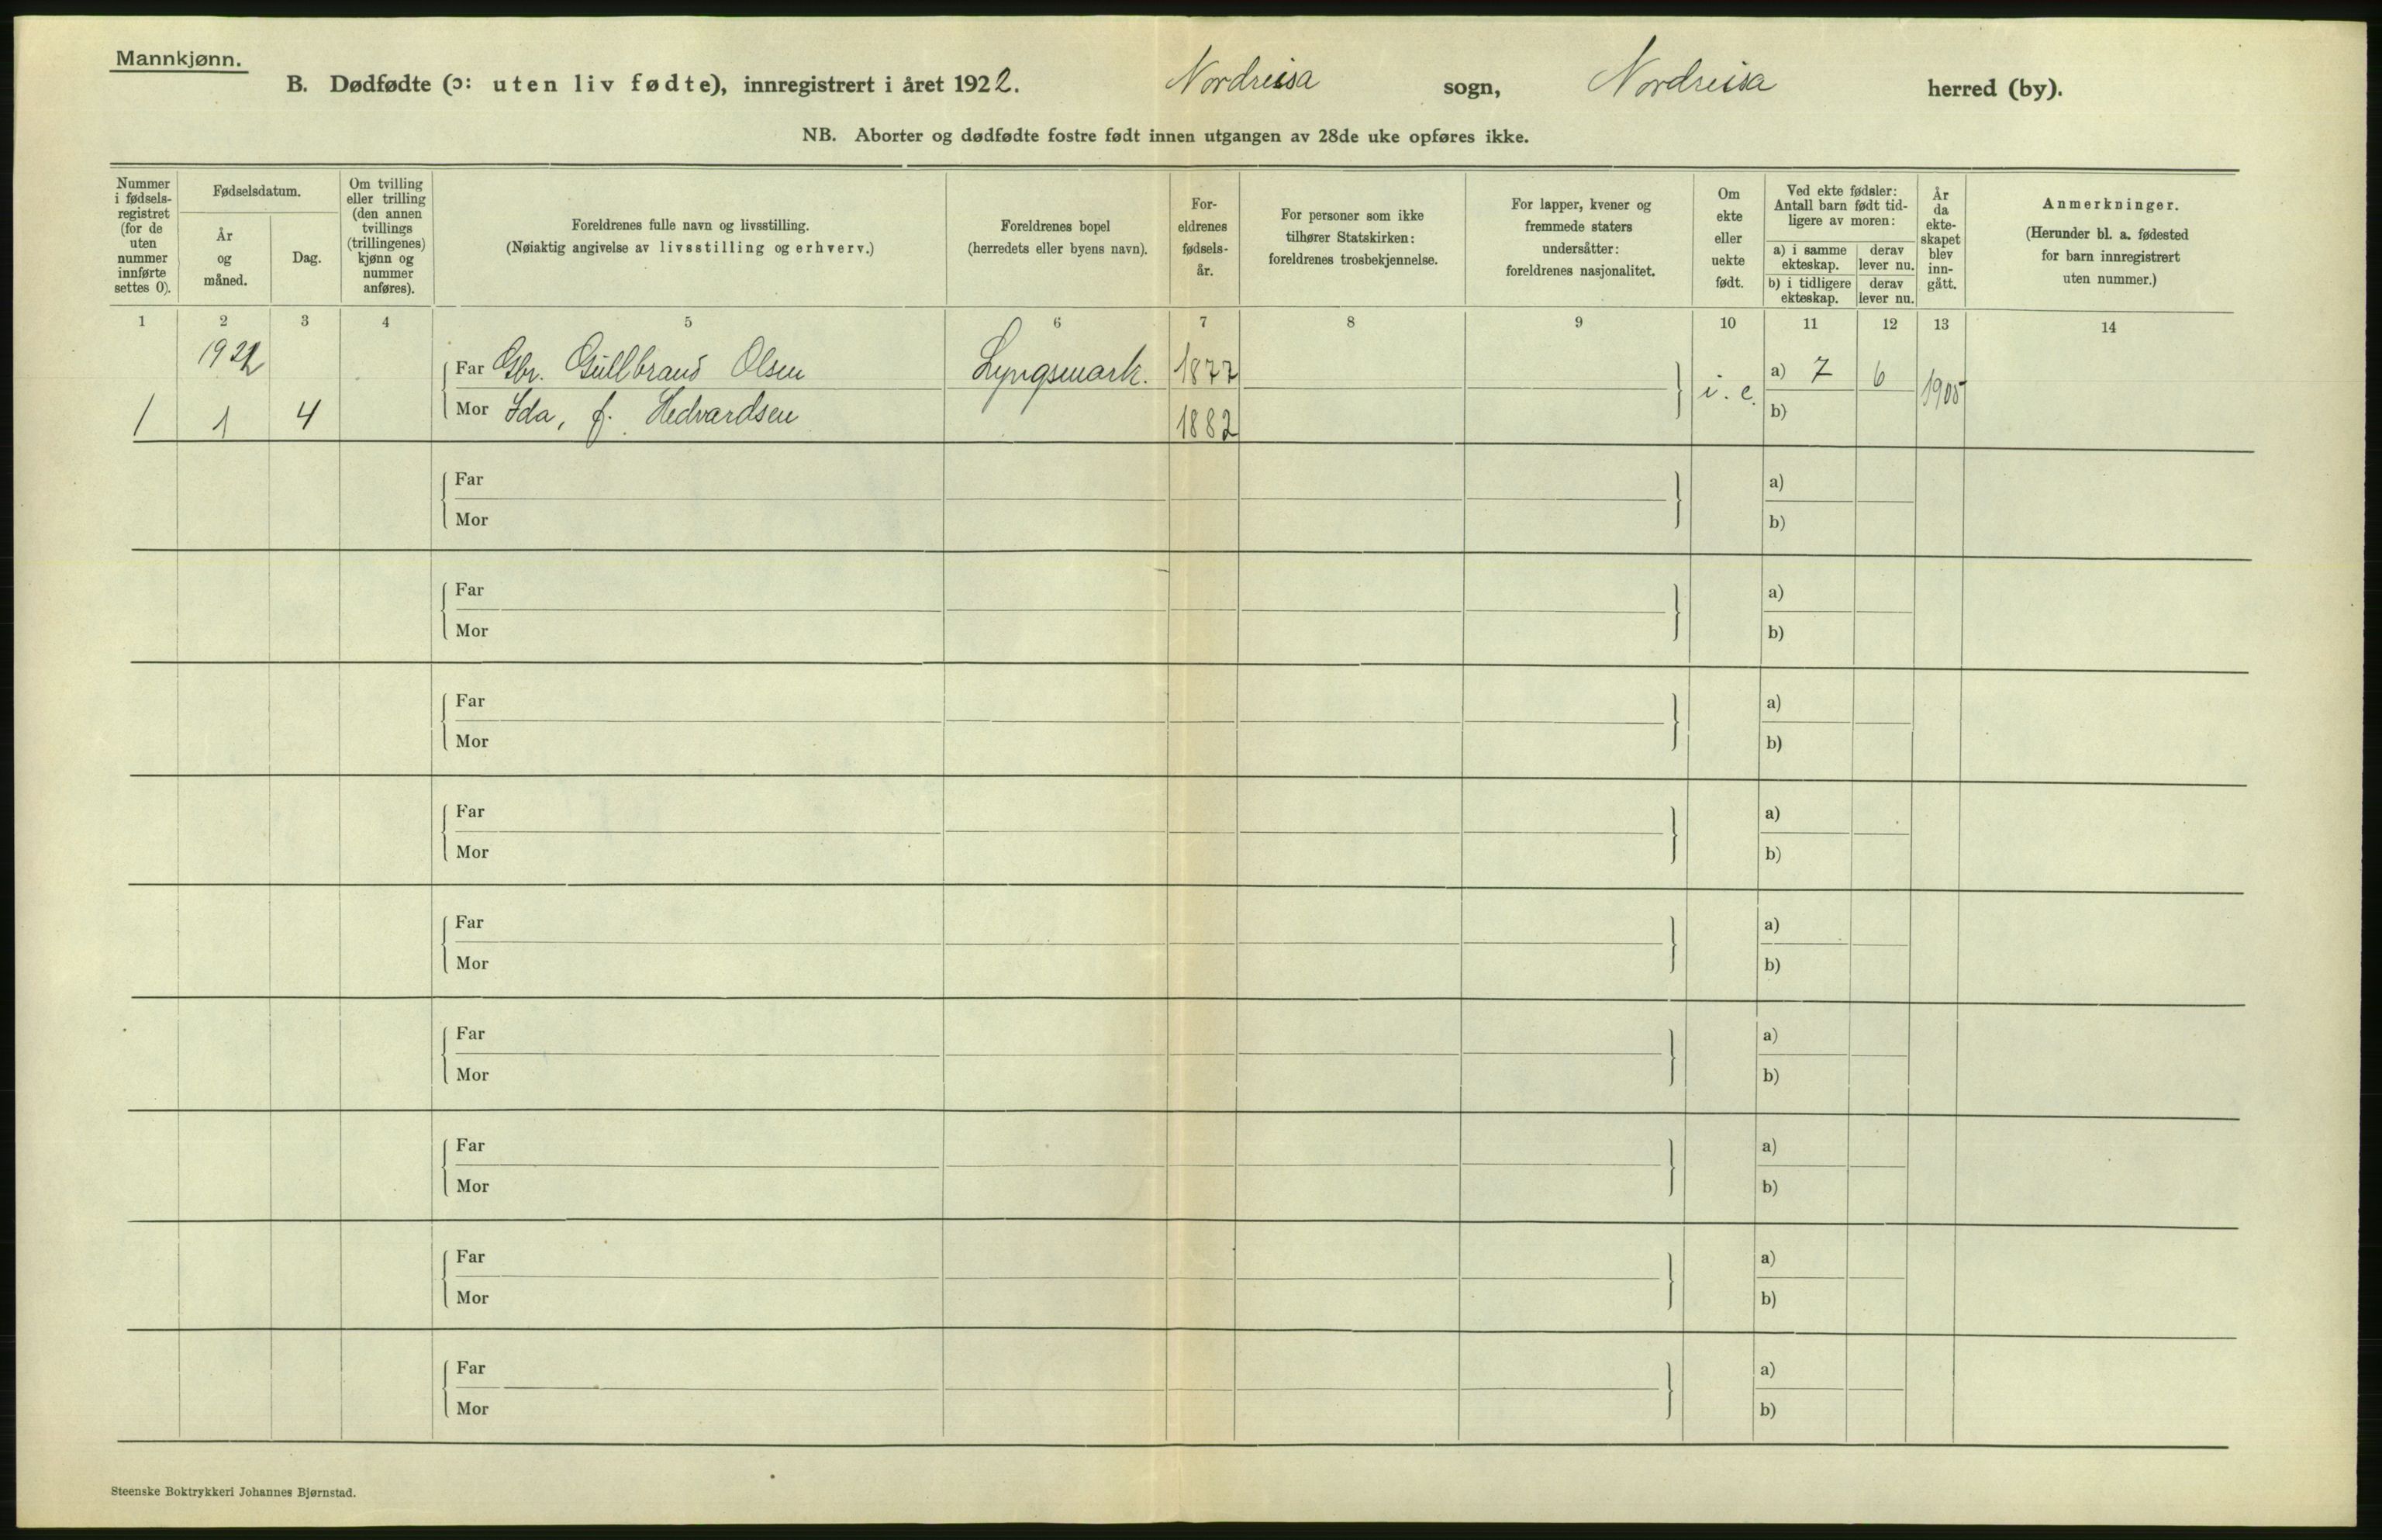 Mannkjønn.
B. Dødfødte (ɔ: uten liv fødte), innregistrert i året 1922. Nordreisa sogn, Nordreisa herred (by).
NB. Aborter og dødfødte fostre født innen utgangen av 28de uke opføres ikke.
Nummer
i fødsels-
registret
(for de
uten
nummer
innførte
settes 0).
Fødselsdatum.
År
og
måned.
Dag.
Om tvilling
eller trilling
(den annen
tvillings
(trillingenes)
kjønn og
nummer
anføres).
Foreldrenes fulle navn og livsstilling.
(Nøiaktig angivelse av livsstilling og erhverv.)
Foreldrenes bopel
(herredets eller byens navn).
For-
eldrenes
fødsels-
år.
For personer som ikke
tilhører Statskirken:
foreldrenes trosbekjennelse.
For lapper, kvener og
fremmede staters
undersåtter:
foreldrenes nasjonalitet.
Om
ekte
eller
uekte
født.
Ved ekte fødsler:
Antall barn født tid-
ligere av moren:
a) i samme
ekteskap.
derav
lever nu.
b) i tidligere
ekteskap.
derav
lever nu.
År
da
ekte-
skapet
blev
inn-
gått.
Anmerkninger.
(Herunder bl. a. fødested
for barn innregistrert
uten nummer.)
1 2 3 4 5 6 7 8 9 10 11 12 13 14
1922
Far Gbr. Gullbrand Olsen Lyngsmark. 1877 i. e. a) 7 6 1905
1 1 4 Mor Ida, f. Hedvardsen 1882 b)
Far a)
Mor b)
Far a)
Mor b)
Far a)
Mor b)
Far a)
Mor b)
Far a)
Mor b)
Far a)
Mor b)
Far a)
Mor b)
Far a)
Mor b)
Far a)
Mor b)
Steenske Boktrykkeri Johannes Bjørnstad.